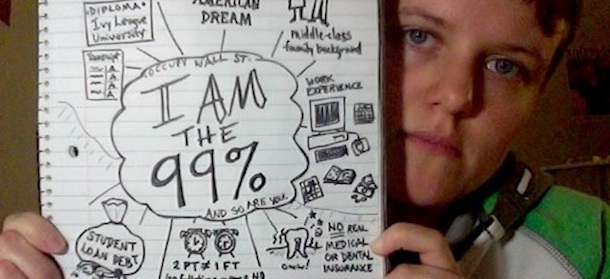 AMERICAN
DREAM
DIPLOMA
Ivy League
University
middle-class
family background
Transcript
A
A
A
OCCUPY WALL ST.
I AM
THE
99%
AND SO ARE YOU.
WORK
EXPERIENCE
STUDENT
LOAN DEBT
2 PT ≠ 1 FT
OWW!
NO REAL
MEDICAL
OR DENTAL
INSURANCE